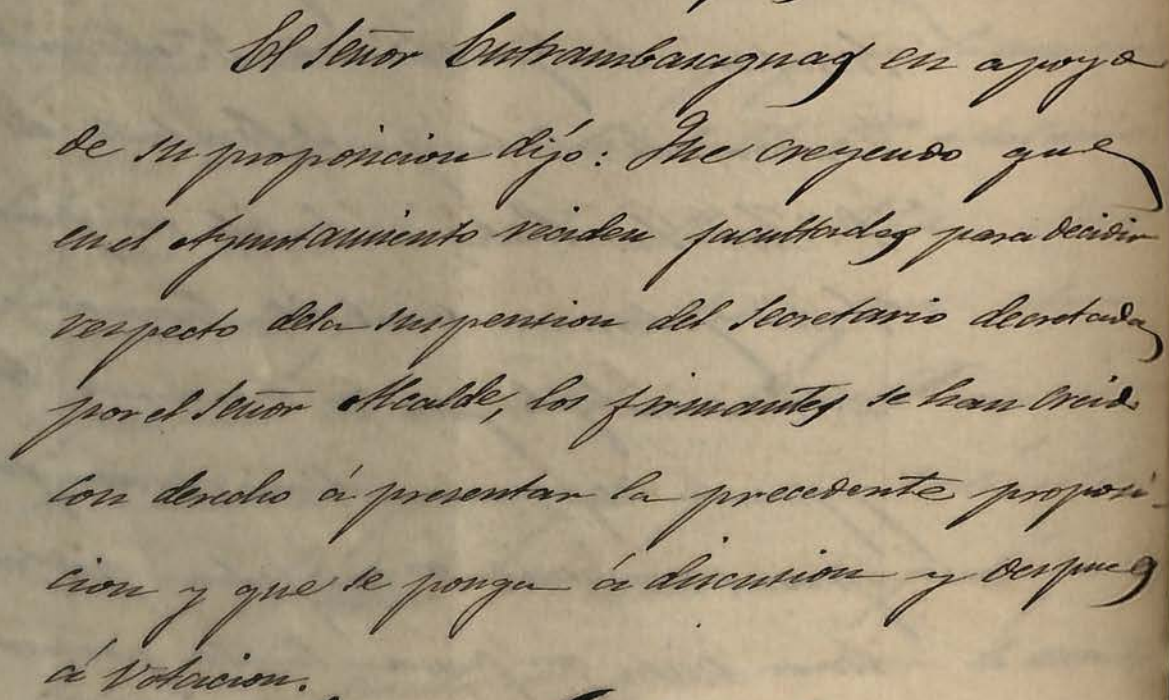 El Señor Entrambasaguas en apoyo
de su proposicion dijo: Que creyendo que
en el Ayuntamiento reciden facultades para decidir
respecto dela suspension del Secretario decretada
por el Señor Alcalde, los firmantes se han creido
con derecho á presentar la precedente proposi-
cion y que se ponga á discusion y despues
á votacion.